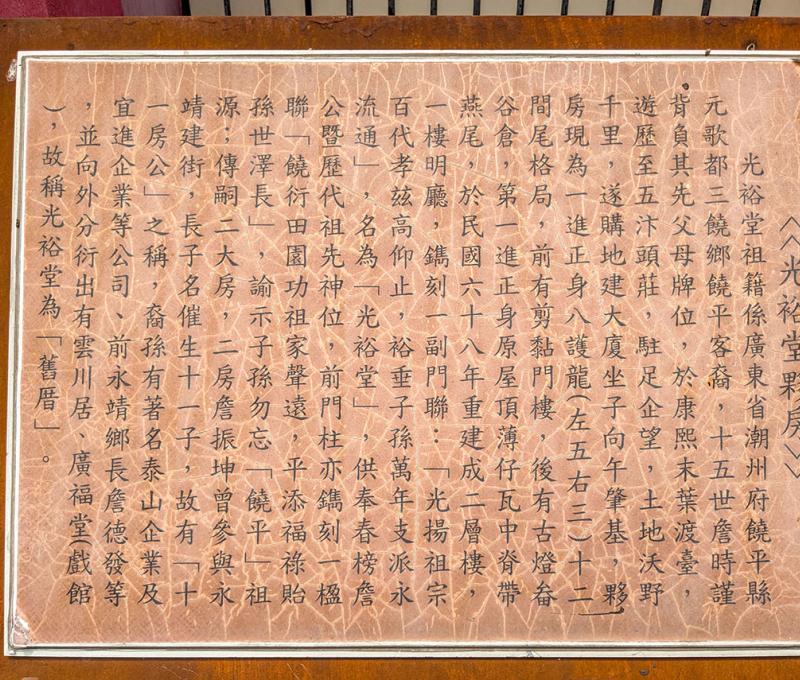 《光裕堂夥房》
光裕堂祖籍係廣東省潮州府饒平縣
元歌都三饒鄉饒平客裔，十五世詹時謹
背負其先父母牌位，於康熙末葉渡臺，
遊歷至五汴頭莊，駐足企望，土地沃野
千里，遂購地建大廈坐子向午肇基，夥
房現為一進正身八護龍(左五右三)十二
間尾格局，前有剪黏門樓，後有古燈畚
谷倉，第一進正身原屋頂薄仔瓦中脊帶
燕尾，於民國六十八年重建成二層樓，
一樓明廳，鐫刻一副門聯：「光揚祖宗
百代孝玆高仰止，裕垂子孫萬年支派永
流通」，名為「光裕堂」，供奉春榜詹
公暨歷代祖先神位，前門柱亦鐫刻一楹
聯「饒衍田園功祖家聲遠，平添福祿貽
孫世澤長」，諭示子孫勿忘「饒平」祖
源；傳嗣二大房，二房詹振坤曾參與永
靖建街，長子名催生十一子，故有「十
一房公」之稱，裔孫有著名泰山企業及
宜進企業等公司、前永靖鄉長詹德發等
，並向外分衍出有雲川居、廣福堂(戲館
)，故稱光裕堂為「舊厝」。